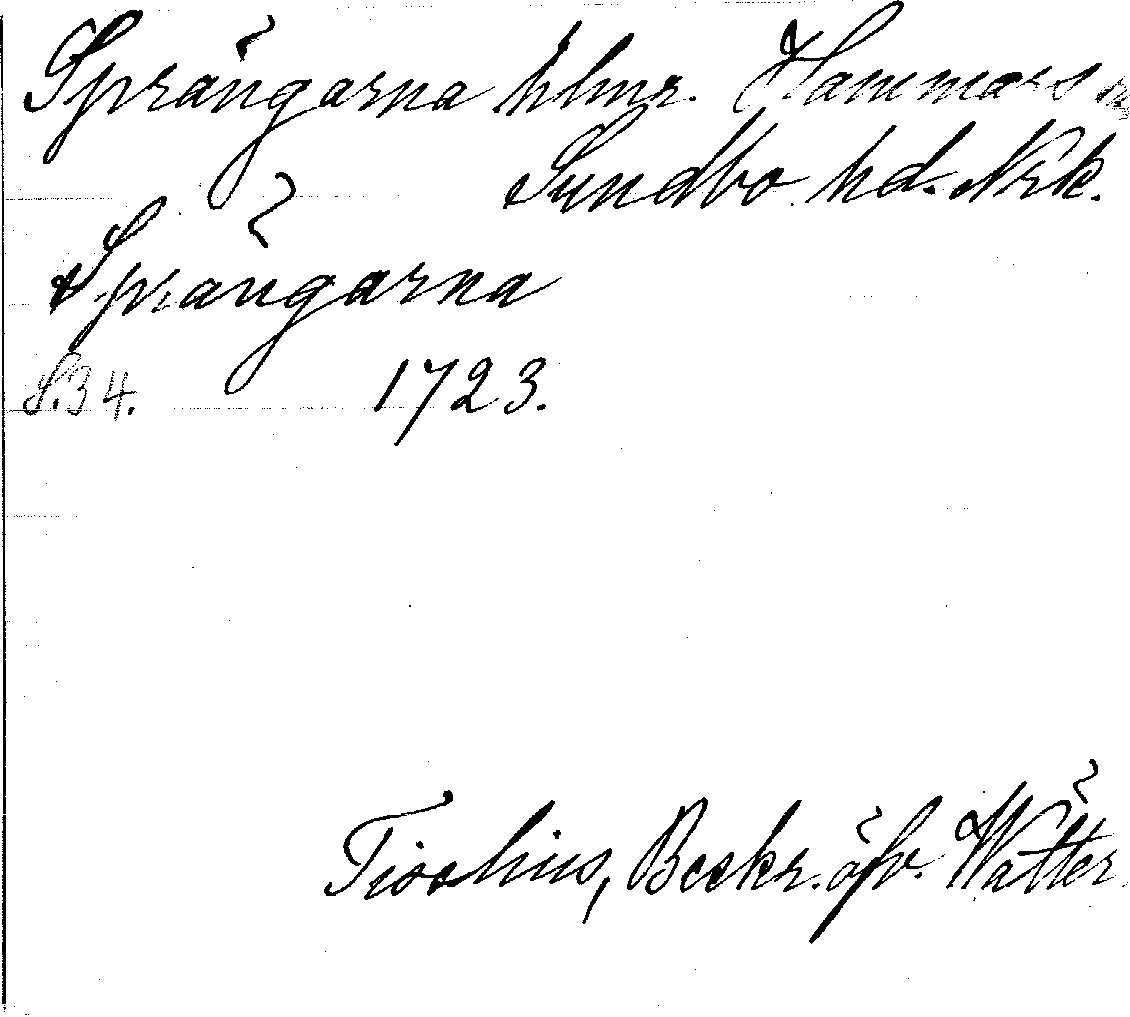 Sprängarna hlmr. Hammars
Sundbo hd. Nrk.
Sprängarna
S.34. 1723.
Tiselius, Beskr. öfv. Wätter